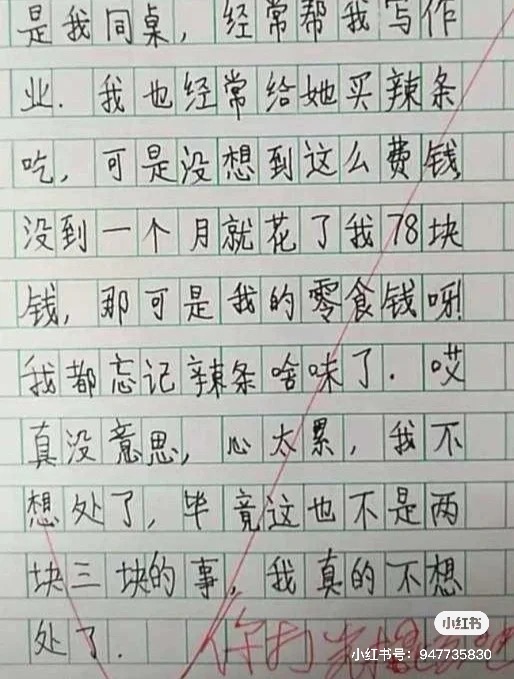 是我同桌，经常帮我写作
业．我也经常给她买辣条
吃，可是没想到这么费钱
没到一个月就花了我78块
钱，那可是我的零食钱呀!
我都忘记辣条啥味了．哎
真没意思，心太累，我不
想处了，毕竟这也不是两
块三块的事，我真的不想
处了．你打
小红书
小红书号：947735830